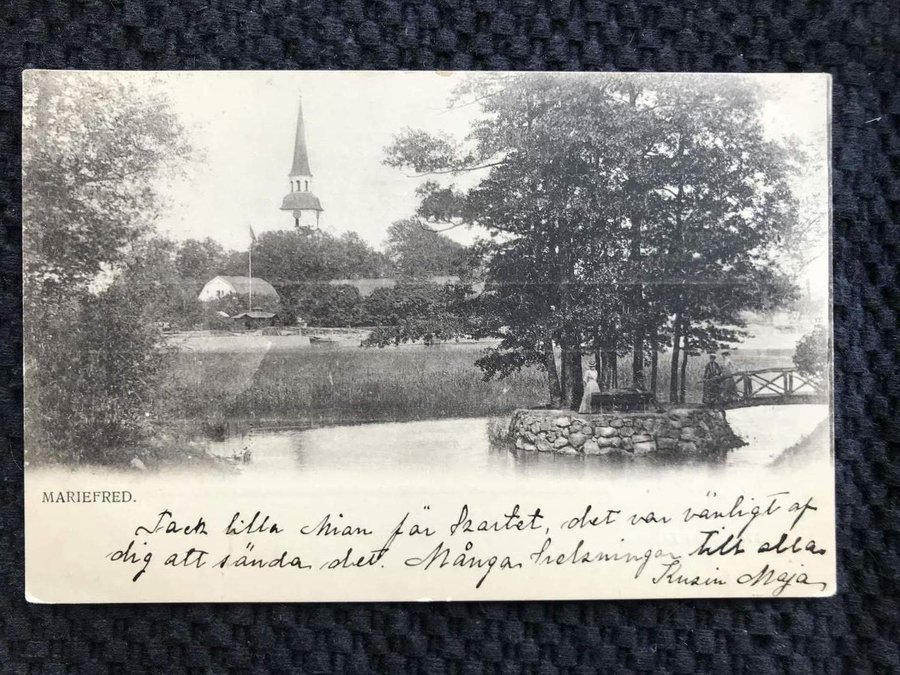 MARIEFRED.
Tack lilla Mian för kartet, det var vänligt af
dig att sända det. Många helsningar till alla
Kusin Maja